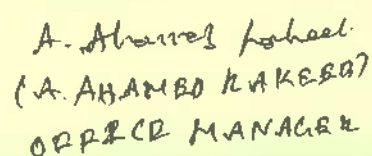 A. Ahamed
(A. AHAMED RAKEEB)
OFFICE MANAGER